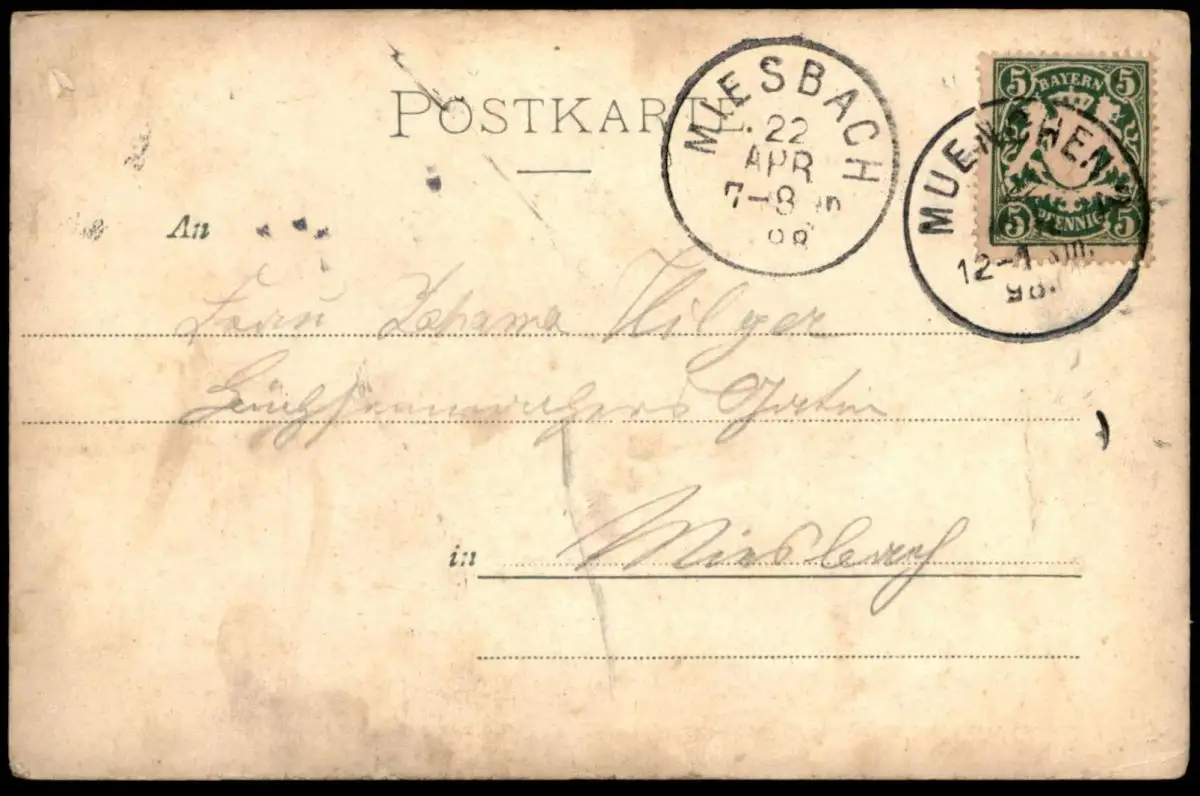 POSTKARTE
MIESBACH
22
APR
7-8
98
BAYERN
5 5
5 5
PFENNIG
MUENCHEN
12-1
98.
An
Frau Johanna Hilger
in Miesbach